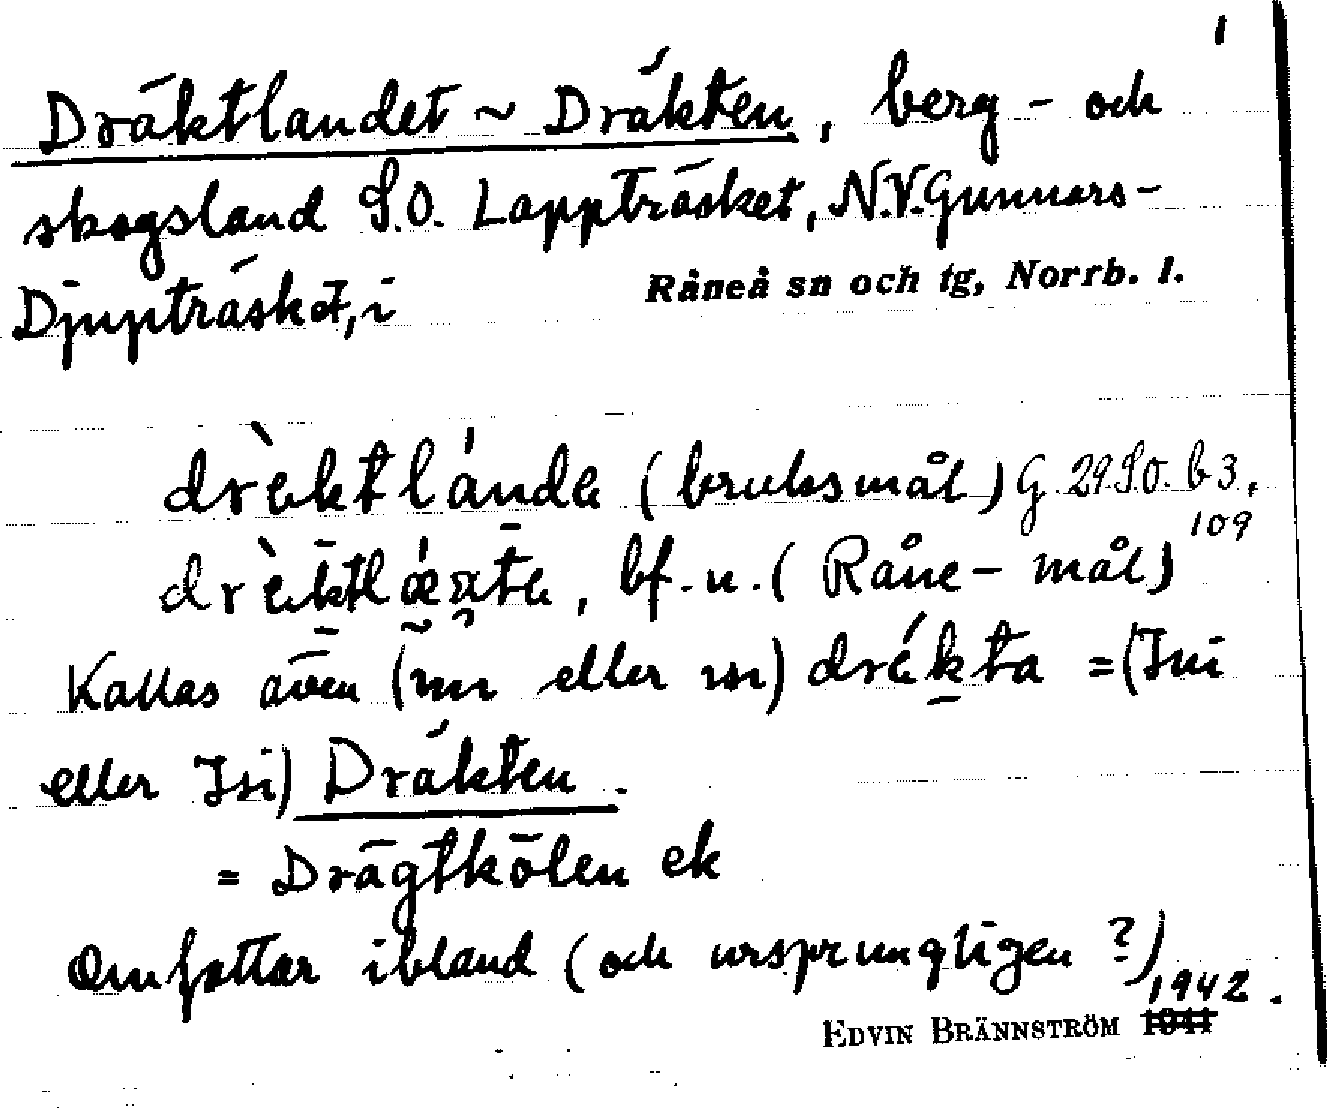 1
Dräktlandet ~ Dräkten, berg- och
skogsland S.O. Lappträsket, N.V. Gunnars-
Djupträsket, i Råneå sn och tg, Norrb. l.
drèktlánde (bruksmål) G 29 S.O. b 3,
109
bf. n. (Råne-mål)
Kallas även (mn eller sn) drékta = (Ini
eller Isi) Dräkten.
= Drägtkölen ek
Omfattar ibland (och ursprungligen ?)
1942.
EDVIN BRÄNNSTRÖM 1941